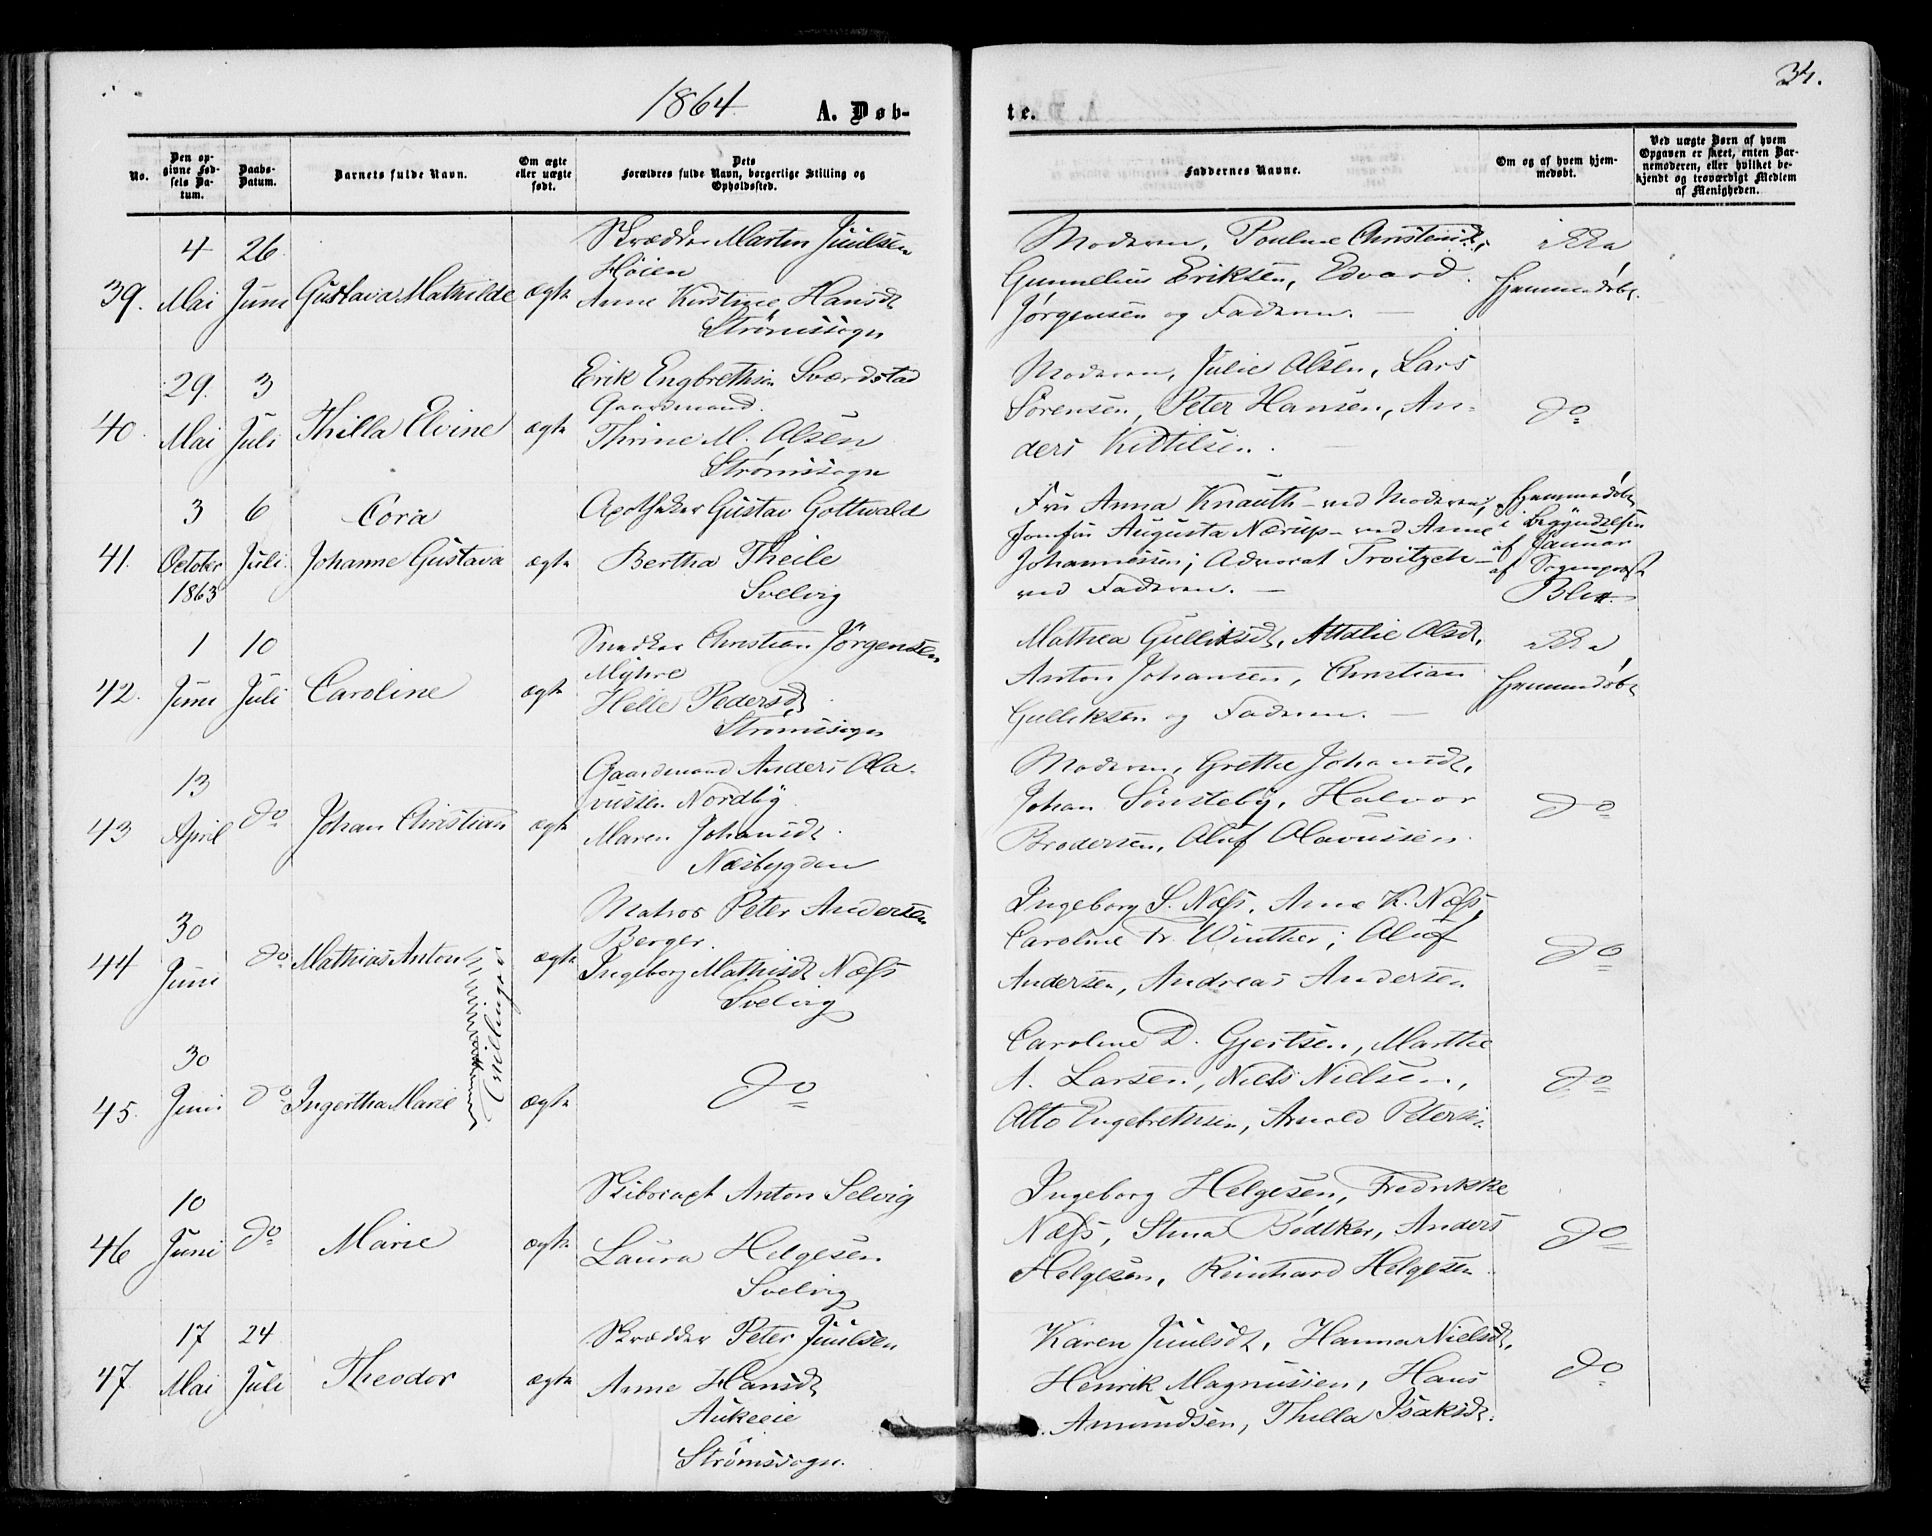 1864
A. Døb-
te.
34.
No.
Den op-
givne Fød-
sels Da-
tum.
Daabs-
Datum.
Barnets fulde Navn.
Om ægte
eller uægte
født.
Dets
Forældres fulde Navn, borgerlige Stilling og
Opholdssted.
Faddernes Navne.
Om og af hvem hjem-
medøbt.
Ved uægte Børn af hvem
Opgaven er skeet, enten Bar-
nemoderen, eller hvilket be-
kjendt og troværdigt Medlem
af Menigheden.
39.
4
Mai
26
Juni
Gustava Mathilde
ægte
Skrædder Martin Juulsen
Høien
Anne Kirstine Hansdt
Strømssogn
Moderen, Pouline Christensd.,
Gunnelius Eriksen, Edvard
Jørgensen og Faderen. —
ikke
hjemmedøbt.
40.
29.
Mai
3
Juli
Thilla Elvine
ægte
Erik Engbrethsen Sværdstad
Gaardmand.
Thrine M. Olsen
Strømssogn
Moderen, Julie Olsen, Lars
Sørensen, Peter Hansen, An-
ders Kittilsen.
do
41.
3
October
1863
6
Juli
Cora
Johanne Gustava
ægte
Apotheker Gustav Gottwald
Bertha Theile
Svelvig
Fru Anna Knauth – ved Moderen;
Jomfru Augusta Nærup – ved Anne
Johannessen; Advocat Troitzch –
ved Faderen. —
Hjemmedøbt
i Begyndelsen
af Januar
af Sognepræst
Blix
42.
1
Juni
10
Juli
Caroline
ægte
Snedker Christian Jørgensen
Myhre
Helle Pedersdt
Strømssogn
Mathea Gulliksdt, Attalie Olsdt,
Anton Johansen, Christian
Gulliksen og Faderen. —
ikke
hjemmedøbt
43
13
April
do
Johan Christian
ægte
Gaardmand Anders Ola-
vussen Nordby
Maren Johansdt.
Næsbygden
Moderen, Grethe Johansdt,
Johan Sønsteby, Halvor
Brodersen, Oluf Olavussen.
do
44
30
Juni
do
Mathias Anton
Tvillinger
ægte
Matros Peter Andersen
Berger.
Ingeborg Mathisdt Næss
Svelvig
Ingeborg S. Næss, Anne K. Næss,
Caroline Fr. Winther; Oluf
Andersen, Andreas Andersen
do
45.
30
Juni
do
Ingertha Marie
ægte
do
Caroline D. Gjertsen, Marthe
A. Larsen, Niels Nielsen,
Otto Engebrethsen, Arnold Petersen
do
46
10
Juni
do
Marie
ægte
Skibscapt Anton Selvig
Laura Helgesen
Svelvig
Ingeborg Helgesen, Fredrikke
Næss, Stina Bødtker, Anders
Helgesen, Reinhard Helgesen
do
47
17
Mai
24
Juli
Theodor
ægte
Skrædder Peter Juulsen
Anne Hansdt
Aukeeie
Strømssogn.
Karen Juulsdt, Hanna Nielsdt,
Henrik Magnussen, Hans
Amundsen, Thilla Isaksdt.
do